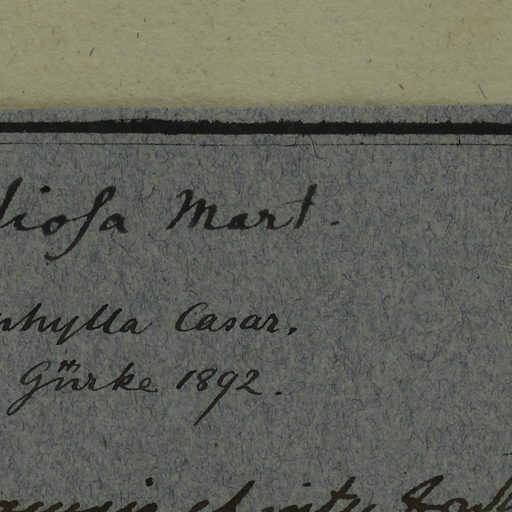 diosa Mart.
phylla Casar.
Gürke 1892.